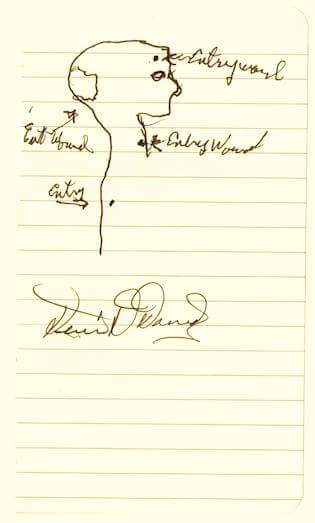 Entry wound
Entry Wound
Exit Wound
Entry
Dennis D David